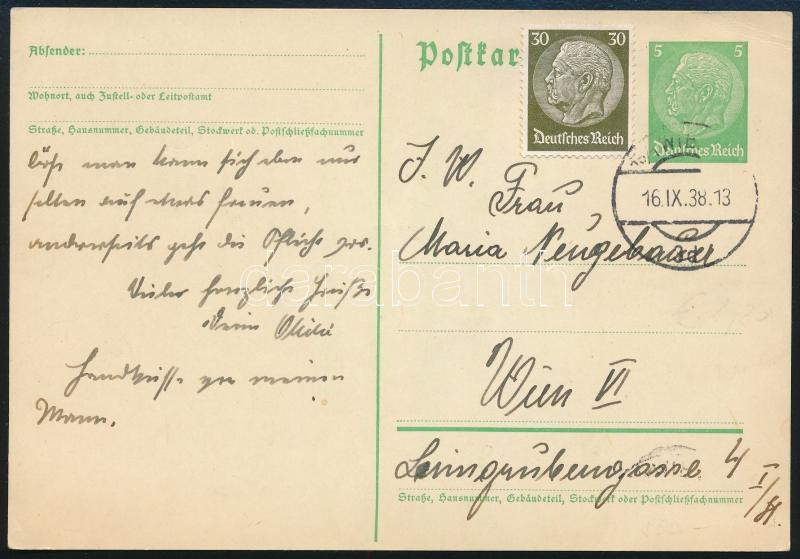 Absender:
Wohnort, auch Zustell- oder Leitpostamt
Straße, Hausnummer, Gebäudeteil, Stockwerk od. Postschließfachnummer
man kann sich eben nur
selten auf etwas freuen,
andererseits geht die Pflicht vor.
Viele herzliche Grüße
Deine
Handküsse von meinem
Mann.
Postkar
30 30
Deutsches Reich
5 5
Deutsches Reich
16.IX.38.13
I. W.
Frau
Maria Neugebauer
Wien VI
Leimgrubengasse 4
I/
Straße, Hausnummer, Gebäudeteil, Stockwerk oder Postschließfachnummer
darabanth